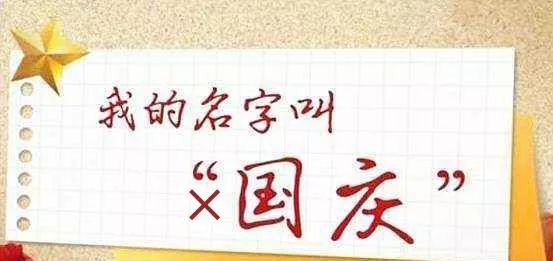 我的名字叫
“×国庆”